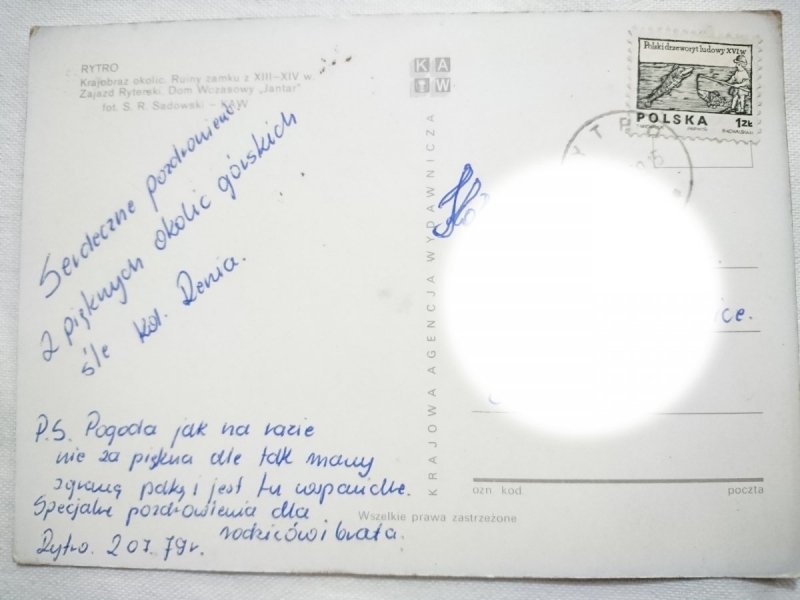 RYTRO
Krajobraz okolic. Ruiny zamku z XIII–XIV w.
Zajazd Ryterski. Dom Wczasowy „Jantar”
fot. S. R. Sadowski – KAW
K A
W
Polski drzeworyt ludowy XVI w
POLSKA 1ZŁ
Serdeczne pozdrowienia
z pięknych okolic górskich
śle kol. Renia.
P.S. Pogoda jak na razie
nie za piękna ale tak mamy
zgraną paką i jest tu wspaniale.
Specjalne pozdrowienia dla
rodziców i brata.
Rytro. 2 07. 79 r.
KRAJOWA AGENCJA WYDAWNICZA
ce.
ozn. kod poczta
Wszelkie prawa zastrzeżone